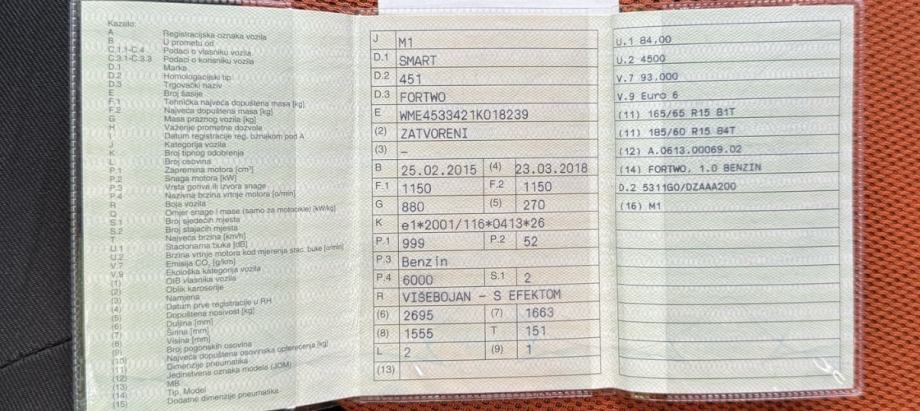 Kazalo:
A Registracijska oznaka vozila
B U prometu od
C.1.1-C.4 Podaci o vlasniku vozila
C.3.1-C.3.3 Podaci o korisniku vozila
D.1 Marka
D.2 Homologacijski tip
D.3 Trgovački naziv
E Broj šasije
F.1 Tehnička najveća dopuštena masa [kg]
F.2 Najveća dopuštena masa [kg]
G Masa praznog vozila [kg]
H Važenje prometne dozvole
I Datum registracije reg. oznakom pod A
J Kategorija vozila
K Broj tipnog odobrenja
L Broj osovina
P.1 Zapremina motora [cm³]
P.2 Snaga motora [kW]
P.3 Vrsta goriva ili izvora snage
P.4 Nazivna brzina vrtnje motora [o/min]
R Boja vozila
Q Omjer snage i mase (samo za motocikle) [kW/kg]
S.1 Broj sjedećih mjesta
S.2 Broj stajaćih mjesta
T Najveća brzina [km/h]
U.1 Stacionarna buka [dB]
U.2 Brzina vrtnje motora kod mjerenja stac. buke [o/min]
V.7 Emisija CO₂ [g/km]
V.9 Ekološka kategorija vozila
(1) OIB vlasnika vozila
(2) Oblik karoserije
(3) Namjena
(4) Datum prve registracije u RH
(5) Dopuštena nosivost [kg]
(6) Duljina [mm]
(7) Širina [mm]
(8) Visina [mm]
(9) Broj pogonskih osovina
(10) Najveća dopuštena osovinska opterećenja [kg]
(11) Dimenzije pneumatika
(12) Jedinstvena oznaka modela (JOM)
(13) MB
(14) Tip, Model
(15) Dodatne dimenzije pneumatika
J M1
D.1 SMART
D.2 451
D.3 FORTWO
E WME4533421K018239
(2) ZATVORENI
(3) –
B 25.02.2015 (4) 23.03.2018
F.1 1150 F.2 1150
G 880 (5) 270
K e1*2001/116*0413*26
P.1 999 P.2 52
P.3 Benzin
P.4 6000 S.1 2
R VIŠEBOJAN – S EFEKTOM
(6) 2695 (7) 1663
(8) 1555 T 151
L 2 (9) 1
(13)
U.1 84,00
U.2 4500
V.7 93.000
V.9 Euro 6
(11) 165/65 R15 81T
(11) 185/60 R15 84T
(12) A.0613.00069.02
(14) FORTWO, 1.0 BENZIN
D.2 5311G0/DZAAA200
(16) M1